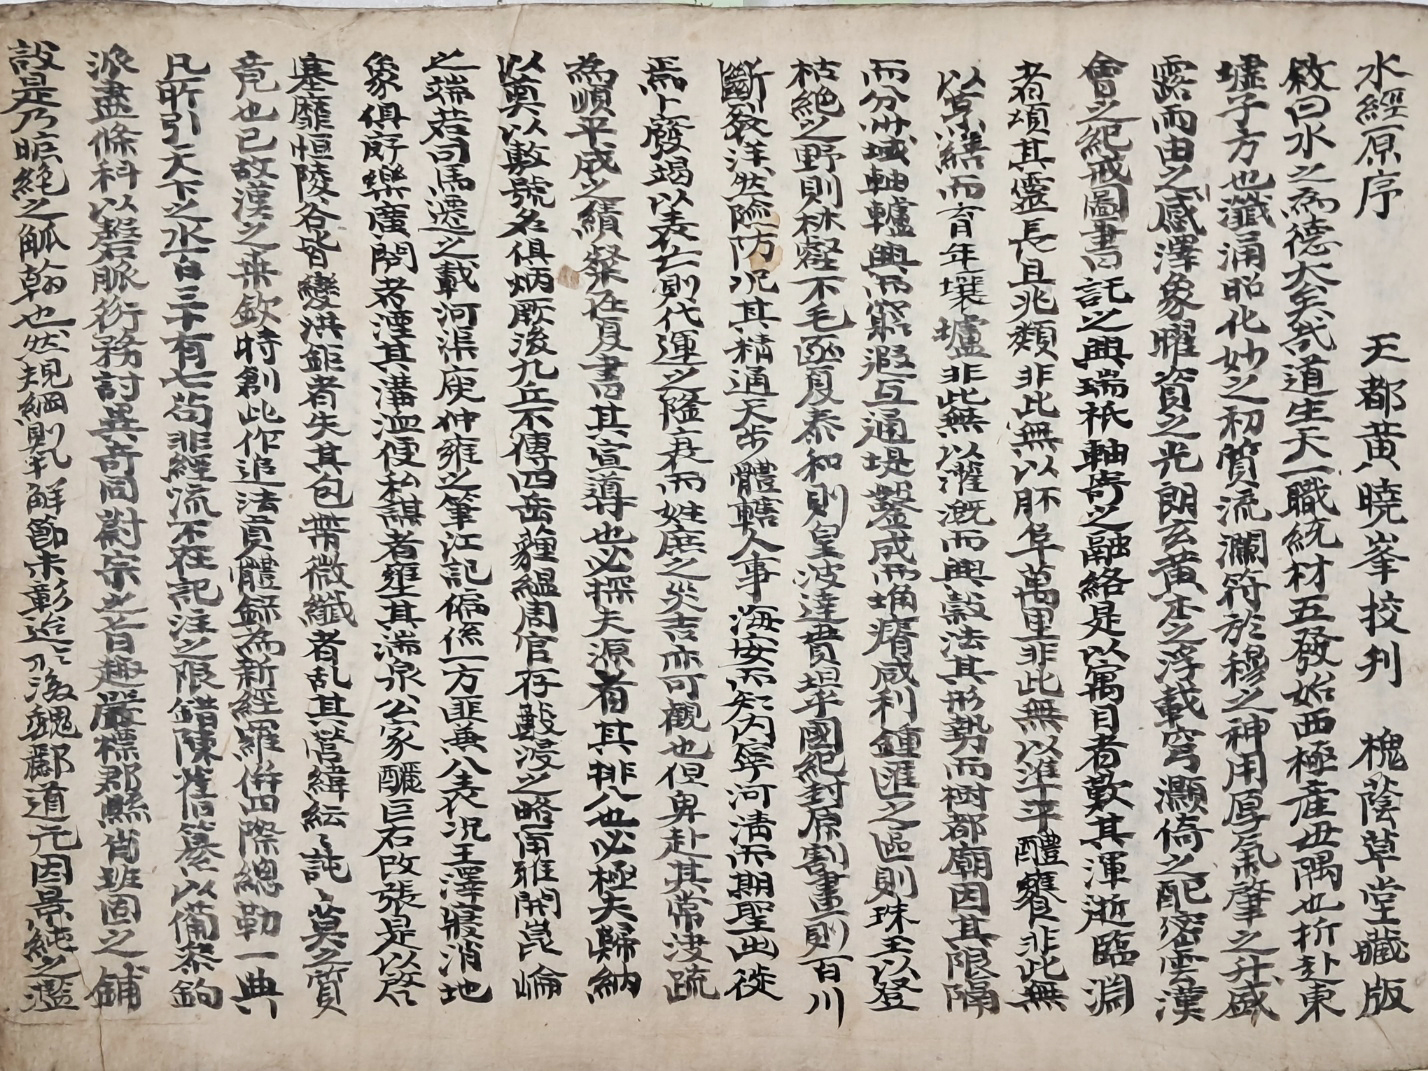 水經原序 天都黄曉峯挍刋 槐蔭草堂藏版
敘曰水之為德大矣哉道生天一職統材五發始西極産丑隅也折赴東
墟子方也瀸涌昭化妙之初質流瀾符於穆之神用厚氣肇之升盛
露而由之感澤象曜資之光朗玄黄本之浮載穹灝倚之配密雲漢
會之紀戒圖書託之興瑞祇軸寄之融絡是以寓目者歎其渾逝臨淵
者頌其靈長且兆類非此無以胚阜萬里非此無以準平醴饔非此無
以烹饍而育年壤壚非此無以灌溉而興穀法其形勢而樹都廟因其限隔
而分州域軸轤興而窮遐互通堤鑿成而埆瘠咸利鍾匯之區則珠玉以登
枯絶之野則林壑不毛函夏泰和則皇波達貫坦平國紀封原割畫則百川
斷裂洋然隂防況其精通天步體轄人事海安而知内寧河淸而期聖出徙
焉卜發竭以表亡則代運之隆衰而姓庶之災吉亦可觀也但卑赴其常浚疏
為順平成之績粲在夏書曰其宣導也必探夫源省其排八也必極夫歸納
以奠以敷號名俱炳厥後九丘不傳四岳蘊緼周官存藪浸之略甬雅開崑崘
之端若司馬遷之載河渠庾仲雍之筆江記偏係一方匪兼八表代况王澤寢消地
象俱斁樂廣閉者湮其溝洫便私謀者壅其湍泉公家釃巨石改張是以啟
塞靡恒陵谷皆變洪鉅者失其包帶微纖者乱其營緯紜訛莫之質
竟也已故漢之桑欽時創此作追法貢體錄為新經羅併四際總勒一典
凡所引天下之水白三十有七苟非經流不在記注之限錯陳舊纂以備黍鉤
派盡條科以磐脈衍務討異奇同對宗之旨趣嚴標郡縣肖班固之鋪
設是乃曠絶之觚翰也然規綱則乳鮮節未彰迨後魏酈道元因景純之濫